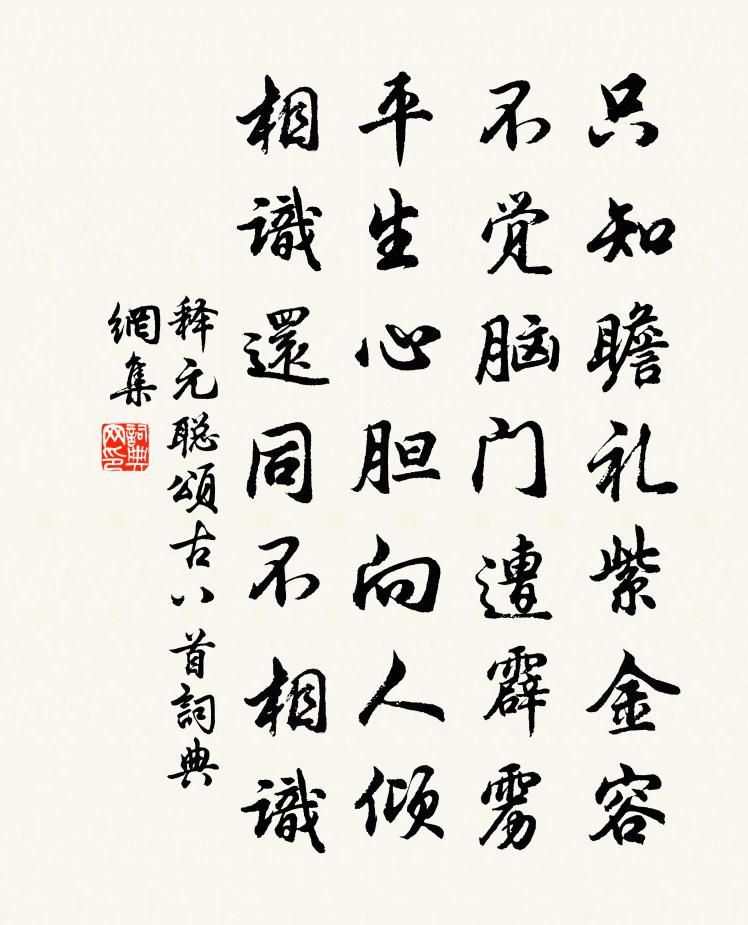 只知瞻礼紫金容
不觉脑门遭霹雳
平生心胆向人倾
相識還同不相識
释元聪頌古八首詞典
網集
詞典
网印